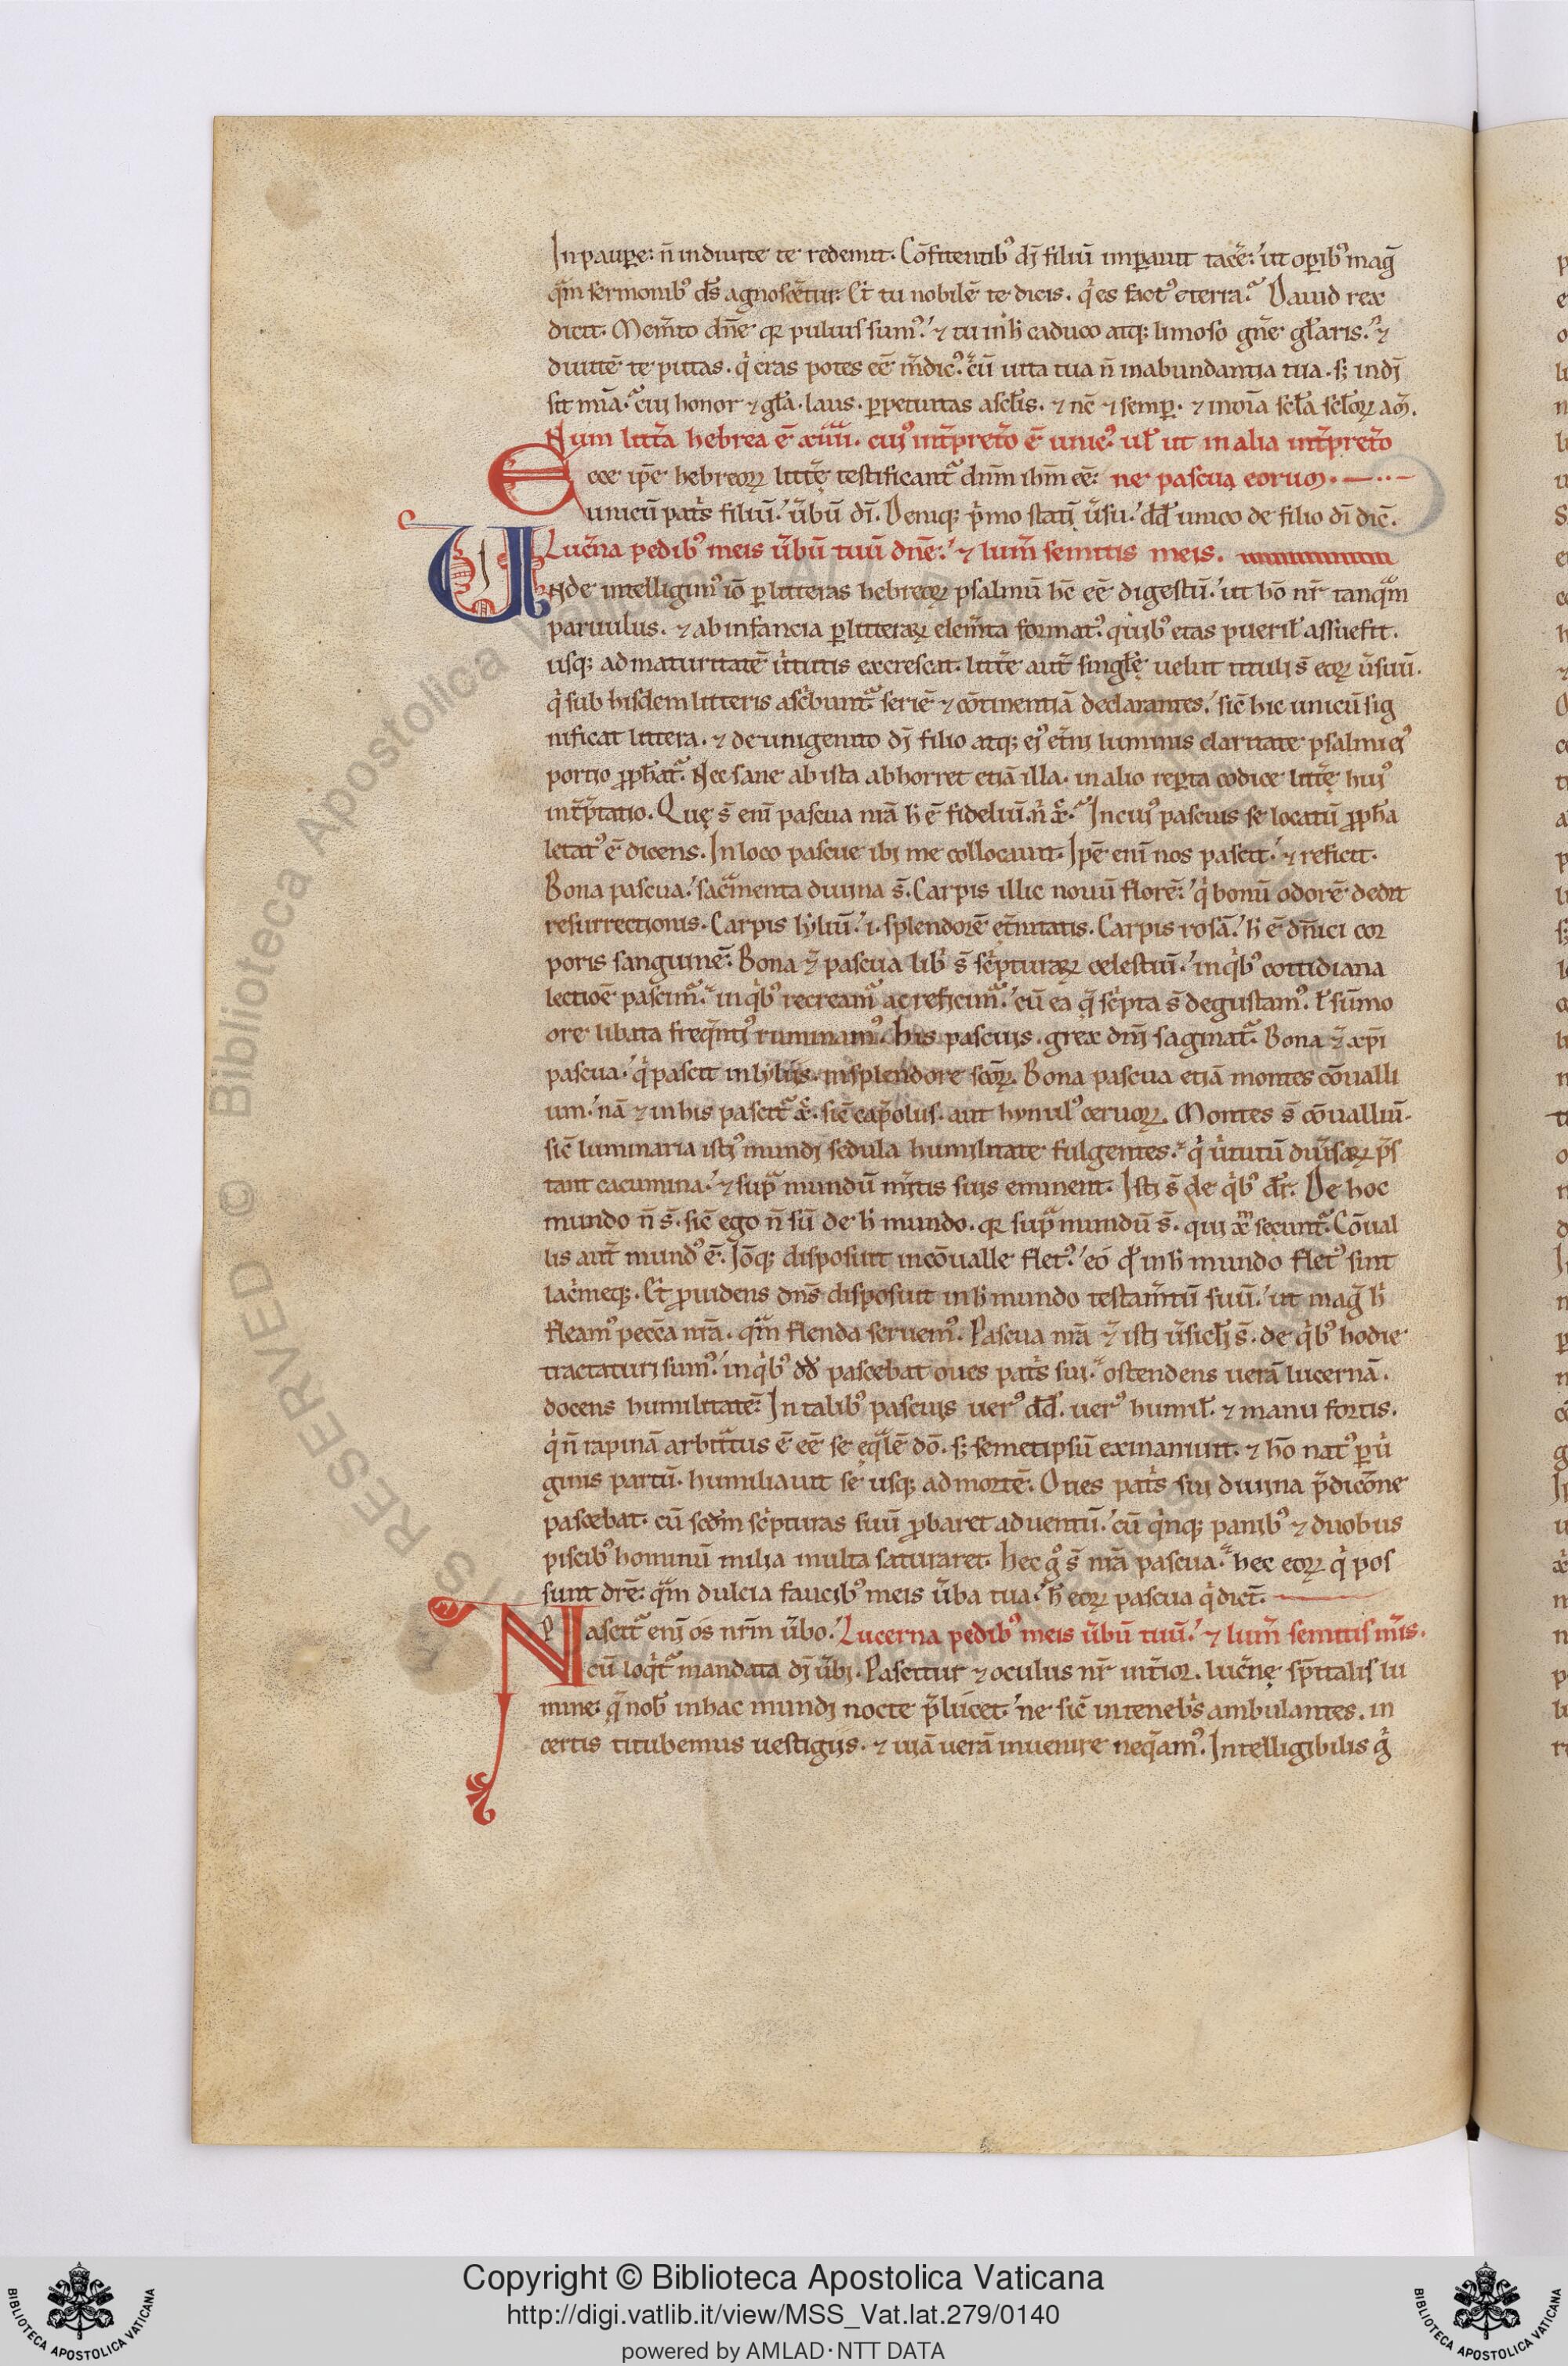 In paupe: n̄ in diuite te redemit. Cōfitentib᾽ dī filiū imꝑauit tacē: ut oꝑib᾽ mag̃
q̄m sermonib᾽ ds̄ agnoscēt̃ur: Et tu nobilē te dicis. qͥ es fact᾽ e terra? Dauid rex
dicit. Mem̃to dn̄e qꝛ puluis sum᾽. ⁊ tu in h̓ caduco atq; limoso gn̄e gl̃aris. ⁊
diuitē te putas. qͥ cras potes eē m̃dic᾽. cū uita tua n̄ in abundantia tua. sꝫ in dī
sit mīa. cui honor ⁊ gl̃a. laus. ꝑpetuitas a scl̃is. ⁊ nc̄ ⁊ semꝑ. ⁊ in oīa scl̃a scl̃oꝝ am̄.
Num litt̃a hebrea ē xiiii. cui᾽ int̃pret̃o ē unic᾽. ul̃ ut in alia int̃pret̃o
Ecce ip̄e hebreoꝝ litt̃ę testificant̃ dn̄m ibm̄ eē: ne pascua eorum.
unicū patͥs filiū. ũbū dī. Deniq; pͥmo statī ũsu. dd̄ unico de filio dī dic̄.
Luc̃na pedib᾽ meis ũbū tuū dn̄e. ⁊ lum̃ semitis meis.
Vnde intelligim᾽ iō ꝑ litteras hebreoꝝ psalmū hc̄ eē digestū. ut hō nr̄ tanqᵃm
paruulus. ⁊ ab infancia ꝑ litteraꝝ elem̃ta format᾽. quib᾽ etas pueril̃ assuefit.
usq; ad maturitatē ũtutis excrescat. litt̃e aut̃ singl̃ę uelut tituli s̄ eoꝝ ũsuū.
qͥ sub hisdem litteris ascͥbunt̃ seriē ⁊ cōtinentiā declarantes. sic̄ hic unicū sig
nificat littera. ⁊ de unigenito dī filio atq; ei᾽ et̃ni luminis claritate psalmi ei᾽
portio ꝓph̃at̃. Nec sane ab ista abhorret etiā illa. in alio reꝑta codice litt̃ę hui᾽
int̃p̃tatio. Quę s̄ enī pascua nr̄a h̓ ē fideliū. nͥ xͨ. In cui᾽ pascuis se locatū ꝓph̃a
letat᾽ ē dicens. In loco pascue ibi me collocauit. Ipē enī nos pascit. ⁊ reficit.
Bona pascua. sacͣmenta diuina s̄. Carpis illic nouū florē. qͥ bonū odorē dedit
resurrectionis. Carpis lyliū. i. splendorē et̃nitatis. Carpis rosā. h̓ ē dn̄ici cor
poris sanguinē. Bona ⁊̃ pascua libͥ s̄ scͥpturaꝝ celestiū. in qͥb᾽ cottidiana
lectioē pascim̃᾽. in qͥb᾽ recreamͣ᾽ ac reficimͣ᾽. cū ea q̃ scͥpta s̄ degustam᾽. l̃ sūmo
ore libata freq̃nti᾽ ruminam᾽. His pascuis. grex dnī saginat̃. Bona ⁊̃ xp̄i
pascua. qͥ pascit in lyliis. in splendore scōꝝ. Bona pascua etiā montes cōualli
um. nā ⁊ in his pascit̃ xͨ. sic̄ cap̃olus. aut hynul᾽ ceruoꝝ. Montes s̄ cōualliū.
sic̄ luminaria isti᾽ mundi sedula humilitate fulgentes. qͥ ũtutū diũsaꝝ p̃s
tant cacumina. ⁊ supͣ mundū m̃itis suis eminent. Isti s̄ de qͥb᾽ dr̃. De hoc
mundo n̄ s̄. sic̄ ego n̄ sū de h̓ mundo. qꝛ supͣ mundū s̄. qui xᵐ secunt̃. Cōual
lis aut̃ mund᾽ ē. Iōq; disposuit in cōualle flet᾽. eo qd̃ in h̓ mundo flet᾽ sint
lacͥmęq;. Et ꝓuidens dn̄s disposuit in h̓ mundo testam̃tū suū. ut mag̃ h̓
fleam᾽ pecc̄a nr̄a. qᵃm flenda seruem᾽. Pascua nr̄a ⁊̃ isti ũsicl̃i s̄. de qͥb᾽ hodie
tractaturi sum᾽. in qͥb᾽ dd̄ pascebat oues patͥs sui. ostendens uerā lucernā.
docens humilitatē. In talib᾽ pascuis uer᾽ dd̄. uer᾽ humil̃. ⁊ manu fortis.
qͥ n̄ rapinā arbitͣtus ē eē se eqͣlē dō. sꝫ semetipsū exinaniuit. ⁊ hō nat᾽ ꝑ uͥ
ginis partū. humiliauit se usq; ad mortē. Oues patͥs sui diuina p̃dicōne
pascebat. cū scd̄m scͥpturas suū ꝓbaret aduentū. cū qͥnq; panib᾽ ⁊ duobus
piscib᾽ hominū milia multa saturaret. Hec gͦ s̄ nr̄a pascua. hec eoꝝ qͥ pos
sunt dr̄e: qᵃm dulcia faucib᾽ meis ũba tua. h̓ eoꝝ pascua qͥ dict̃.
Nascit̃ enī os nr̄m ũbo. Lucerna pedib᾽ meis ũbū tuū. ⁊ lum̃ semitis m̃is.
cū loqͥt̃ mandata dī ũbi. Pascitur ⁊ oculus nr̄ int̃ior. luc̃nę sp̄italis lu
mine: q̃ nob̃ in hac mundi nocte p̃lucet. ne sic̄ in tenebͥs ambulantes. in
certis titubemus uestigiis. ⁊ uiā uerā inuenire neqͣam᾽. Intelligibilis gͥ
Copyright © Biblioteca Apostolica Vaticana
http://digi.vatlib.it/view/MSS_Vat.lat.279/0140
powered by AMLAD·NTT DATA